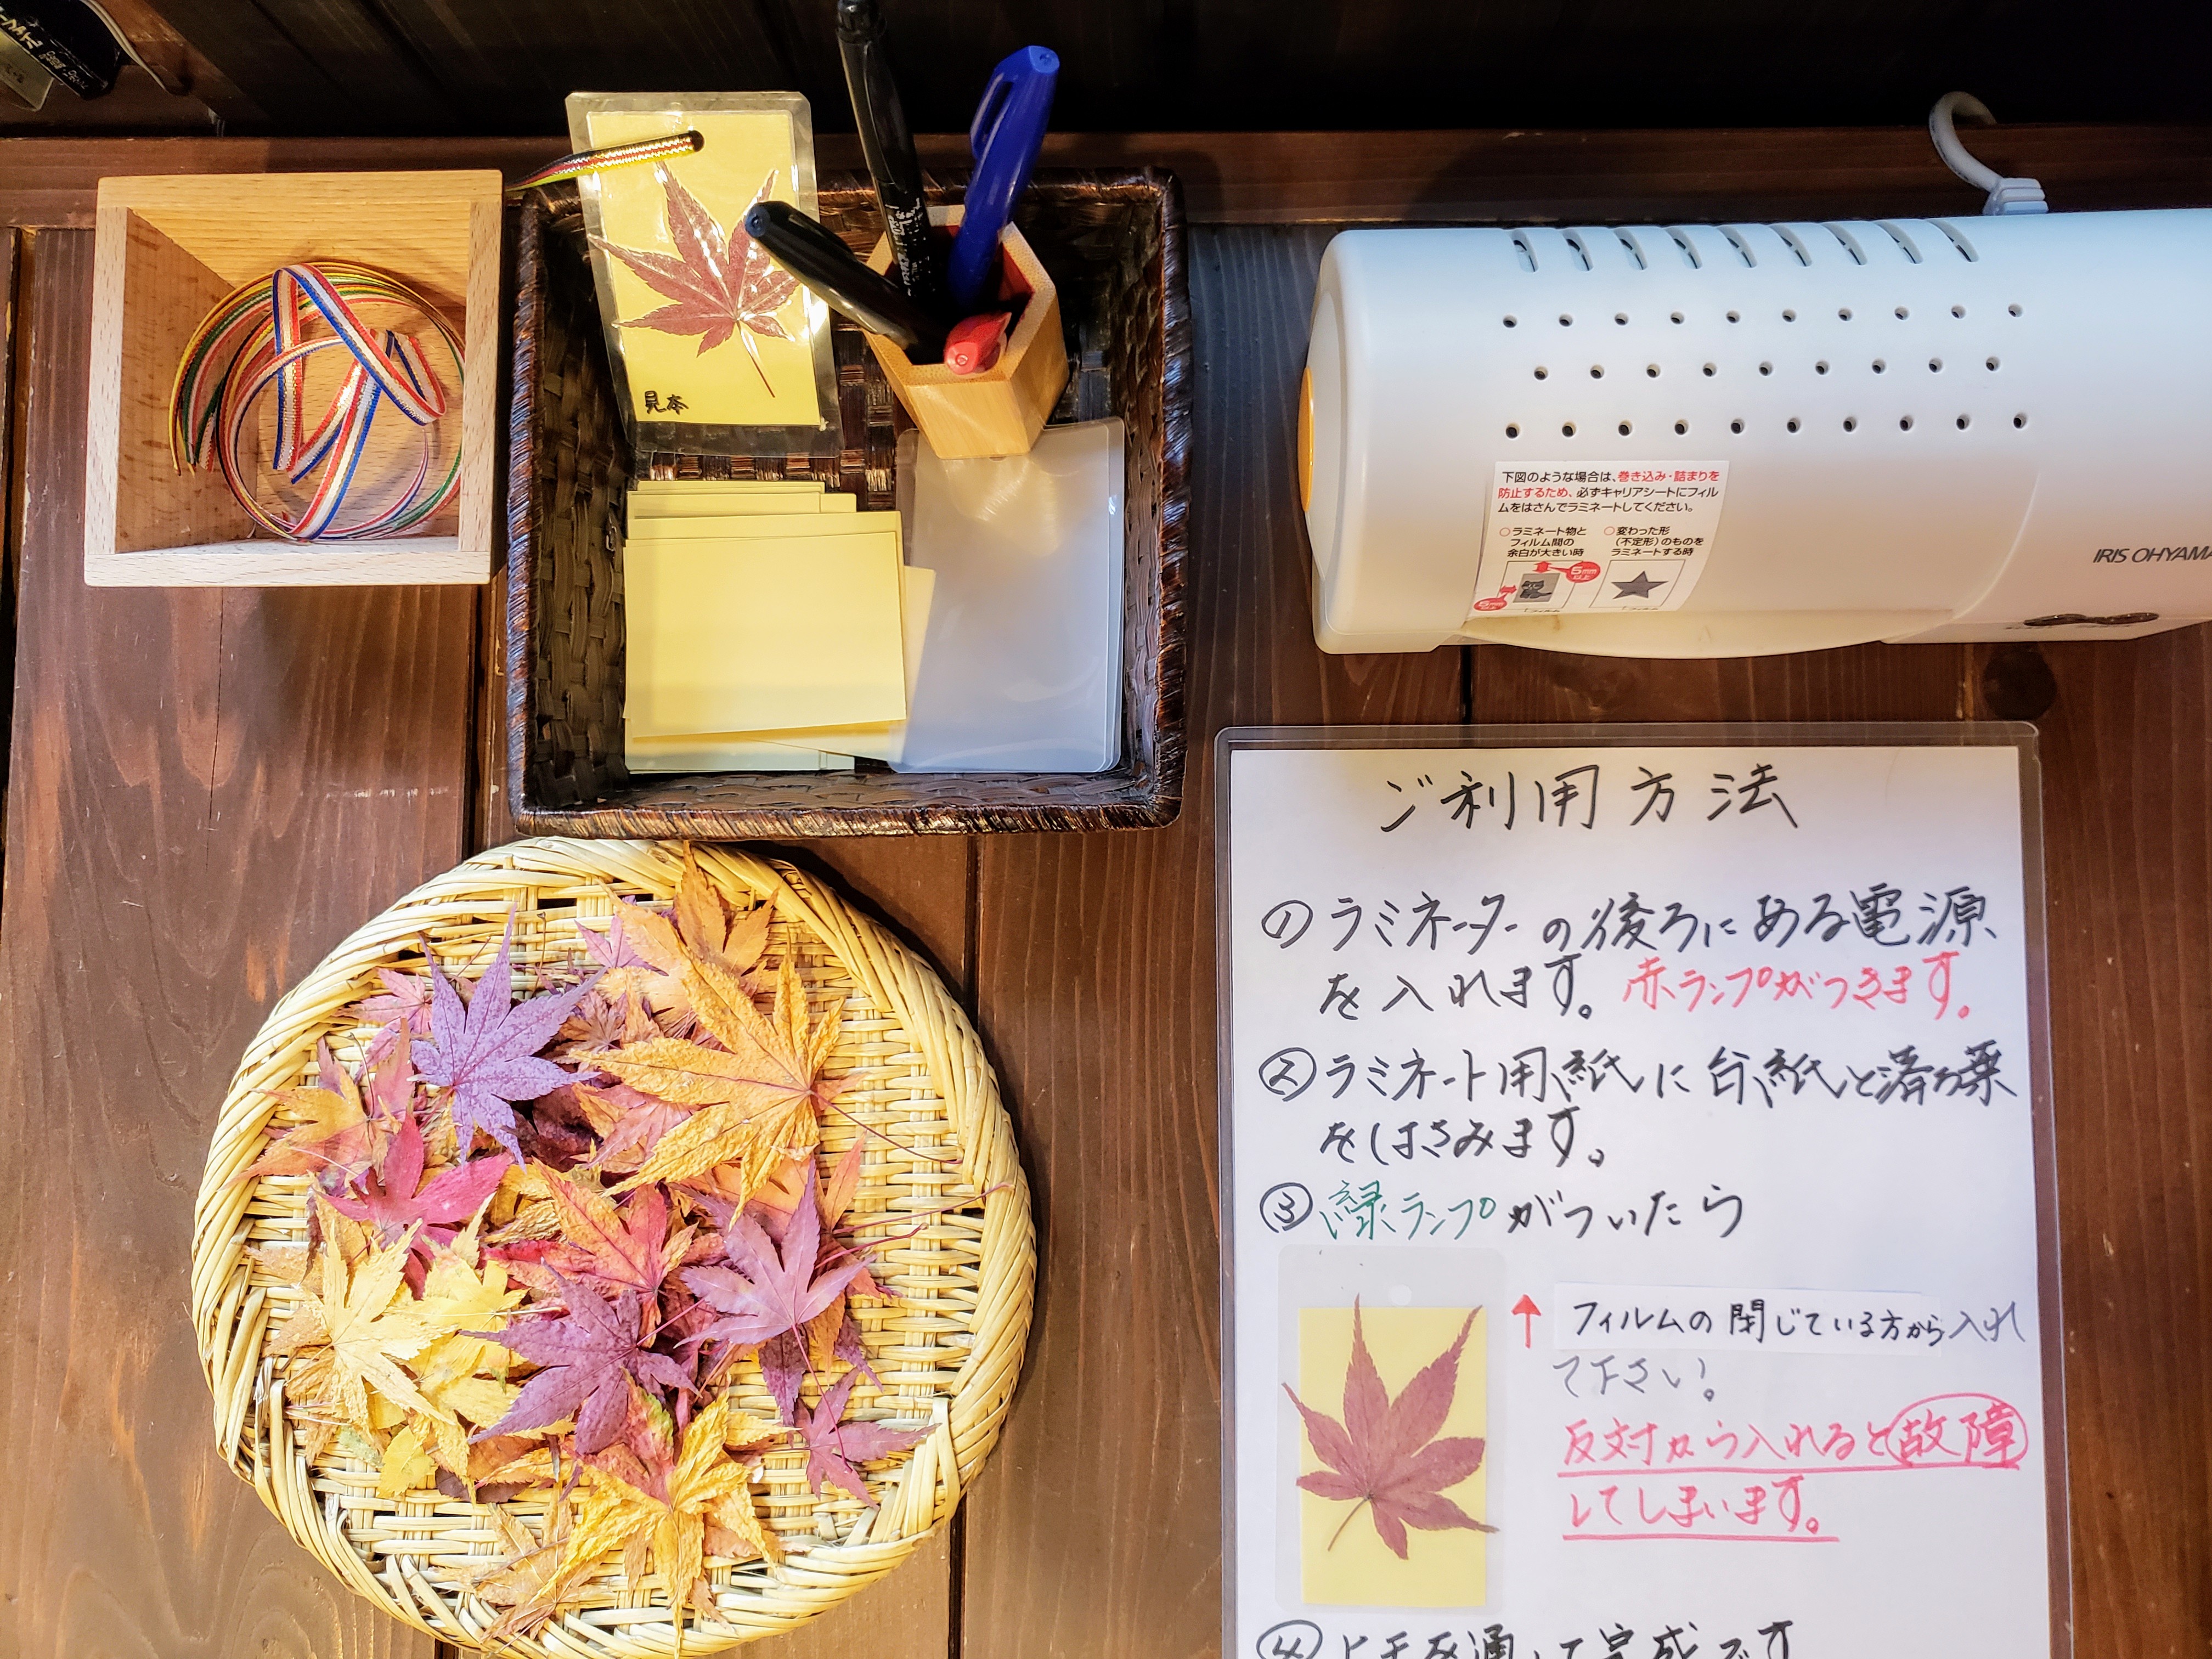 見本
下図のような場合は、巻き込み・詰まりを
防止するため、必ずキャリアシートにフィル
ムをはさんでラミネートしてください。
○ラミネート物と
フィルム間の
余白が大きい時
○変わった形
(不定形)のものを
ラミネートする時
5mm
以上
5mm
以上
IRIS OHYAMA
ご利用方法
① ラミネーターの後ろにある電源
を入れます。赤ランプがつきます。
② ラミネート用紙に台紙と落ち葉
をはさみます。
③ 緑ランプがついたら
↑ フィルムの閉じている方から入れ
て下さい。
反対から入れると故障
してしまいます。
④ ヒモを通して完成です